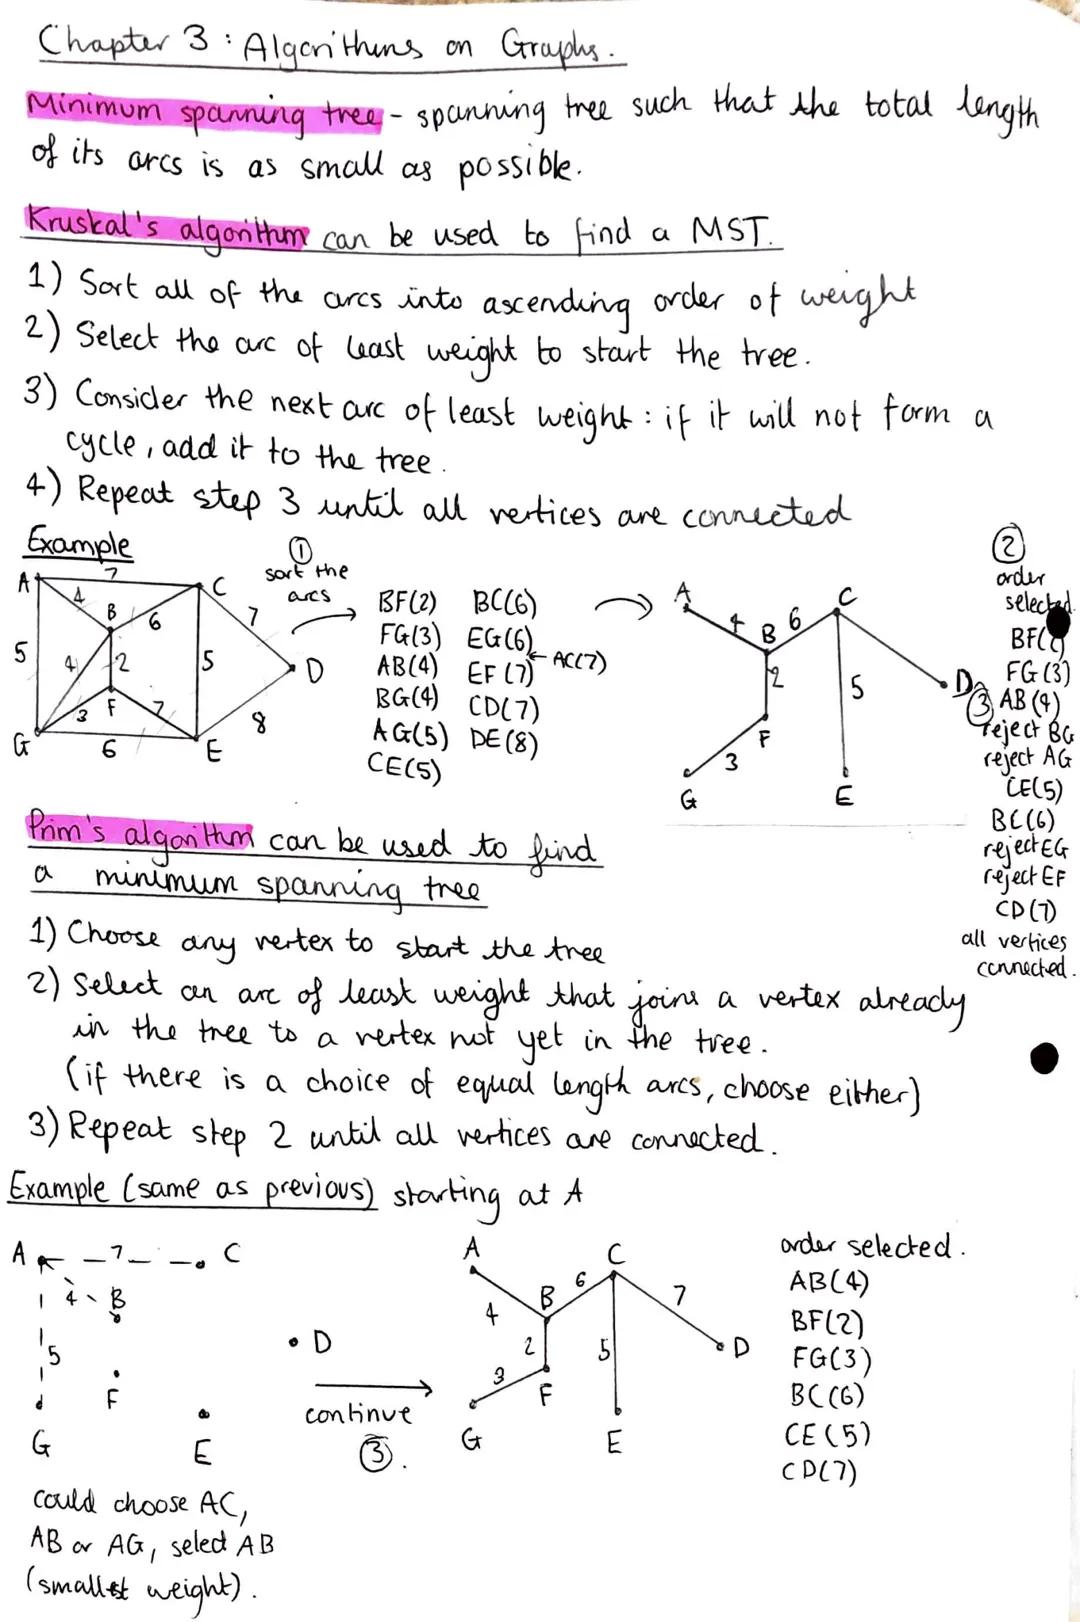 Chapter 3 : Algorithms on Graphs.
Minimum spanning tree - spanning tree such that the total length
of its arcs is as small as possible.
Kruskal's algorithm can be used to find a MST.
1) Sort all of the arcs into ascending order of weight
2) Select the arc of least weight to start the tree.
3) Consider the next arc of least weight : if it will not form a
cycle, add it to the tree.
4) Repeat step 3 until all vertices are connected
Example
A 7 C
4 B 6 7
5 4 2 5 D
3 F 7 8
G 6 E
①
sort the
arcs
BF(2) BC(6)
FG(3) EG(6)
AB(4) EF(7) ← AC(7)
BG(4) CD(7)
AG(5) DE(8)
CE(5)
A C
4 B 6
2 5 D
F
3
G E
②
order
selected.
FG(3)
③ AB(4)
reject BG
reject AG
CE(5)
BC(6)
reject EG
reject EF
CD(7)
all vertices
connected.
Prim's algorithm can be used to find
a minimum spanning tree
1) Choose any vertex to start the tree
2) Select an arc of least weight that joins a vertex already
in the tree to a vertex not yet in the tree.
(if there is a choice of equal length arcs, choose either)
3) Repeat step 2 until all vertices are connected.
Example (same as previous) starting at A
A 7 C
4 B
5 D
F
G E
could choose AC,
AB or AG, select AB
(smallest weight).
continue
③.
A C
4 B 6 7
2 5 D
3 F
G E
order selected.
AB(4)
BF(2)
FG(3)
BC(6)
CE(5)
CD(7)